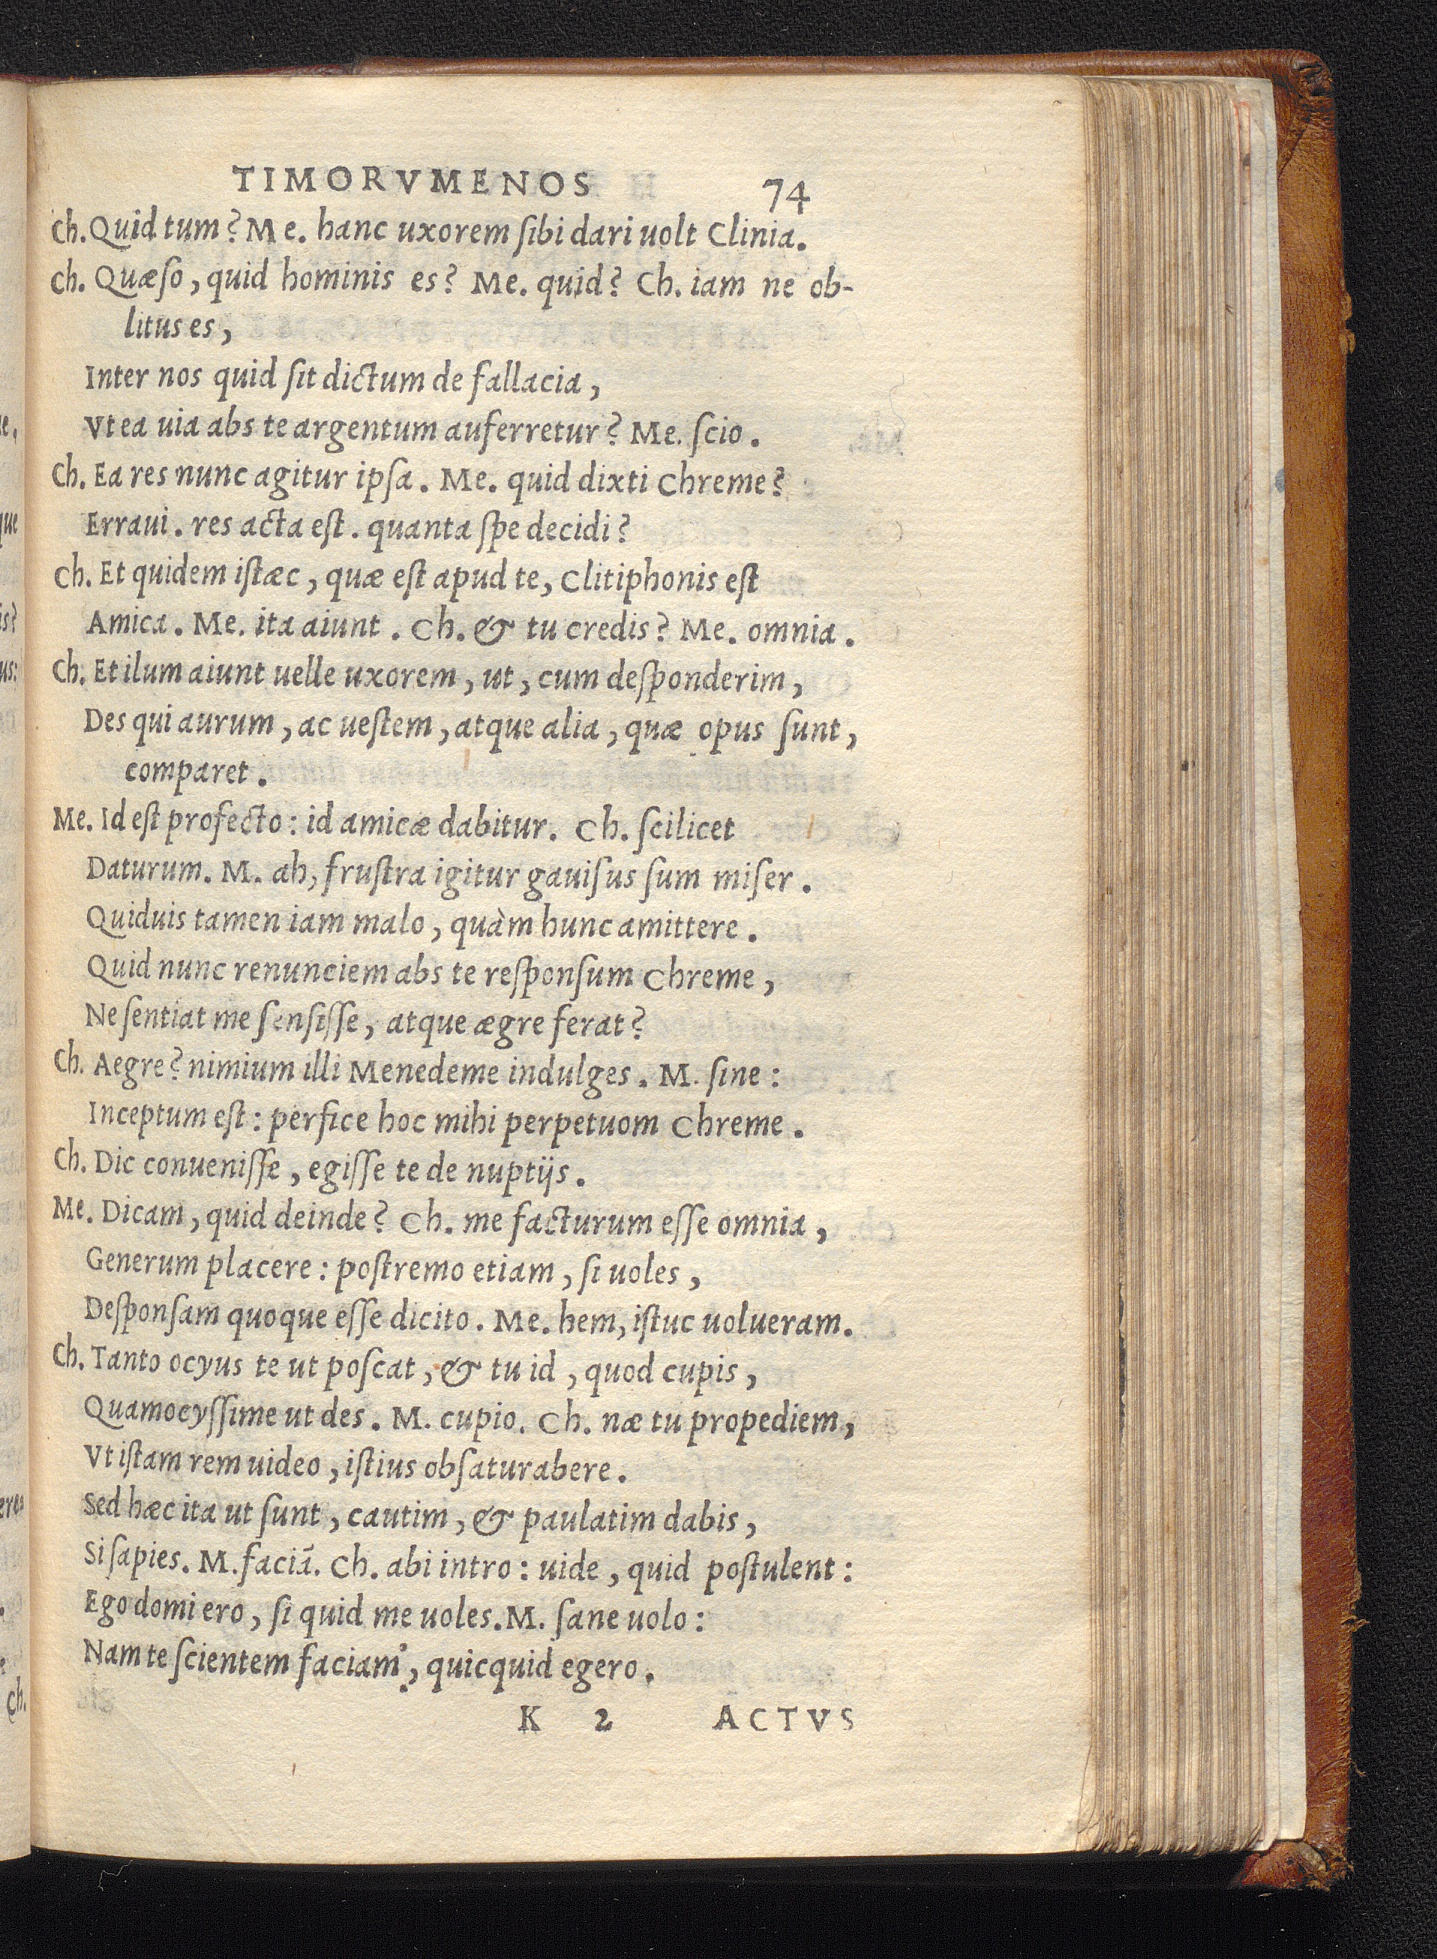 TIMORVMENOS 74
Ch. Quid tum? Me. hanc uxorem sibi dari uolt Clinia.
Ch. Quæso, quid hominis es? Me. quid? Ch. iam ne ob-
litus es,
Inter nos quid sit dictum de fallacia,
Vt ea uia abs te argentum auferretur? Me. scio.
Ch. Ea res nunc agitur ipsa. Me. quid dixti Chreme?
Erraui. res acta est. quanta spe decidi?
Ch. Et quidem istæc, quæ est apud te, Clitiphonis est
Amica. Me. ita aiunt. Ch. & tu credis? Me. omnia.
Ch. Et ilum aiunt uelle uxorem, ut, cum desponderim,
Des qui aurum, ac uestem, atque alia, quæ opus sunt,
comparet.
Me. Id est profecto: id amicæ dabitur. Ch. scilicet
Daturum. M. ah, frustra igitur gauisus sum miser.
Quiduis tamen iam malo, quàm hunc amittere.
Quid nunc renunciem abs te responsum Chreme,
Ne sentiat me sensisse, atque ægre ferat?
Ch. Aegre? nimium illi Menedeme indulges. M. sine:
Inceptum est: perfice hoc mihi perpetuom Chreme.
Ch. Dic conuenisse, egisse te de nuptijs.
Me. Dicam, quid deinde? Ch. me facturum esse omnia,
Generum placere: postremo etiam, si uoles,
Desponsam quoque esse dicito. Me. hem, istuc uolueram.
Ch. Tanto ocyus te ut poscat, & tu id, quod cupis,
Quamocyssime ut des. M. cupio. Ch. næ tu propediem,
Vt istam rem uideo, istius obsaturabere.
Sed hæc ita ut sunt, cautim, & paulatim dabis,
Si sapies. M. faciā. Ch. abi intro: uide, quid postulent:
Ego domi ero, si quid me uoles. M. sane uolo:
Nam te scientem faciam, quicquid egero.
K 2 ACTVS